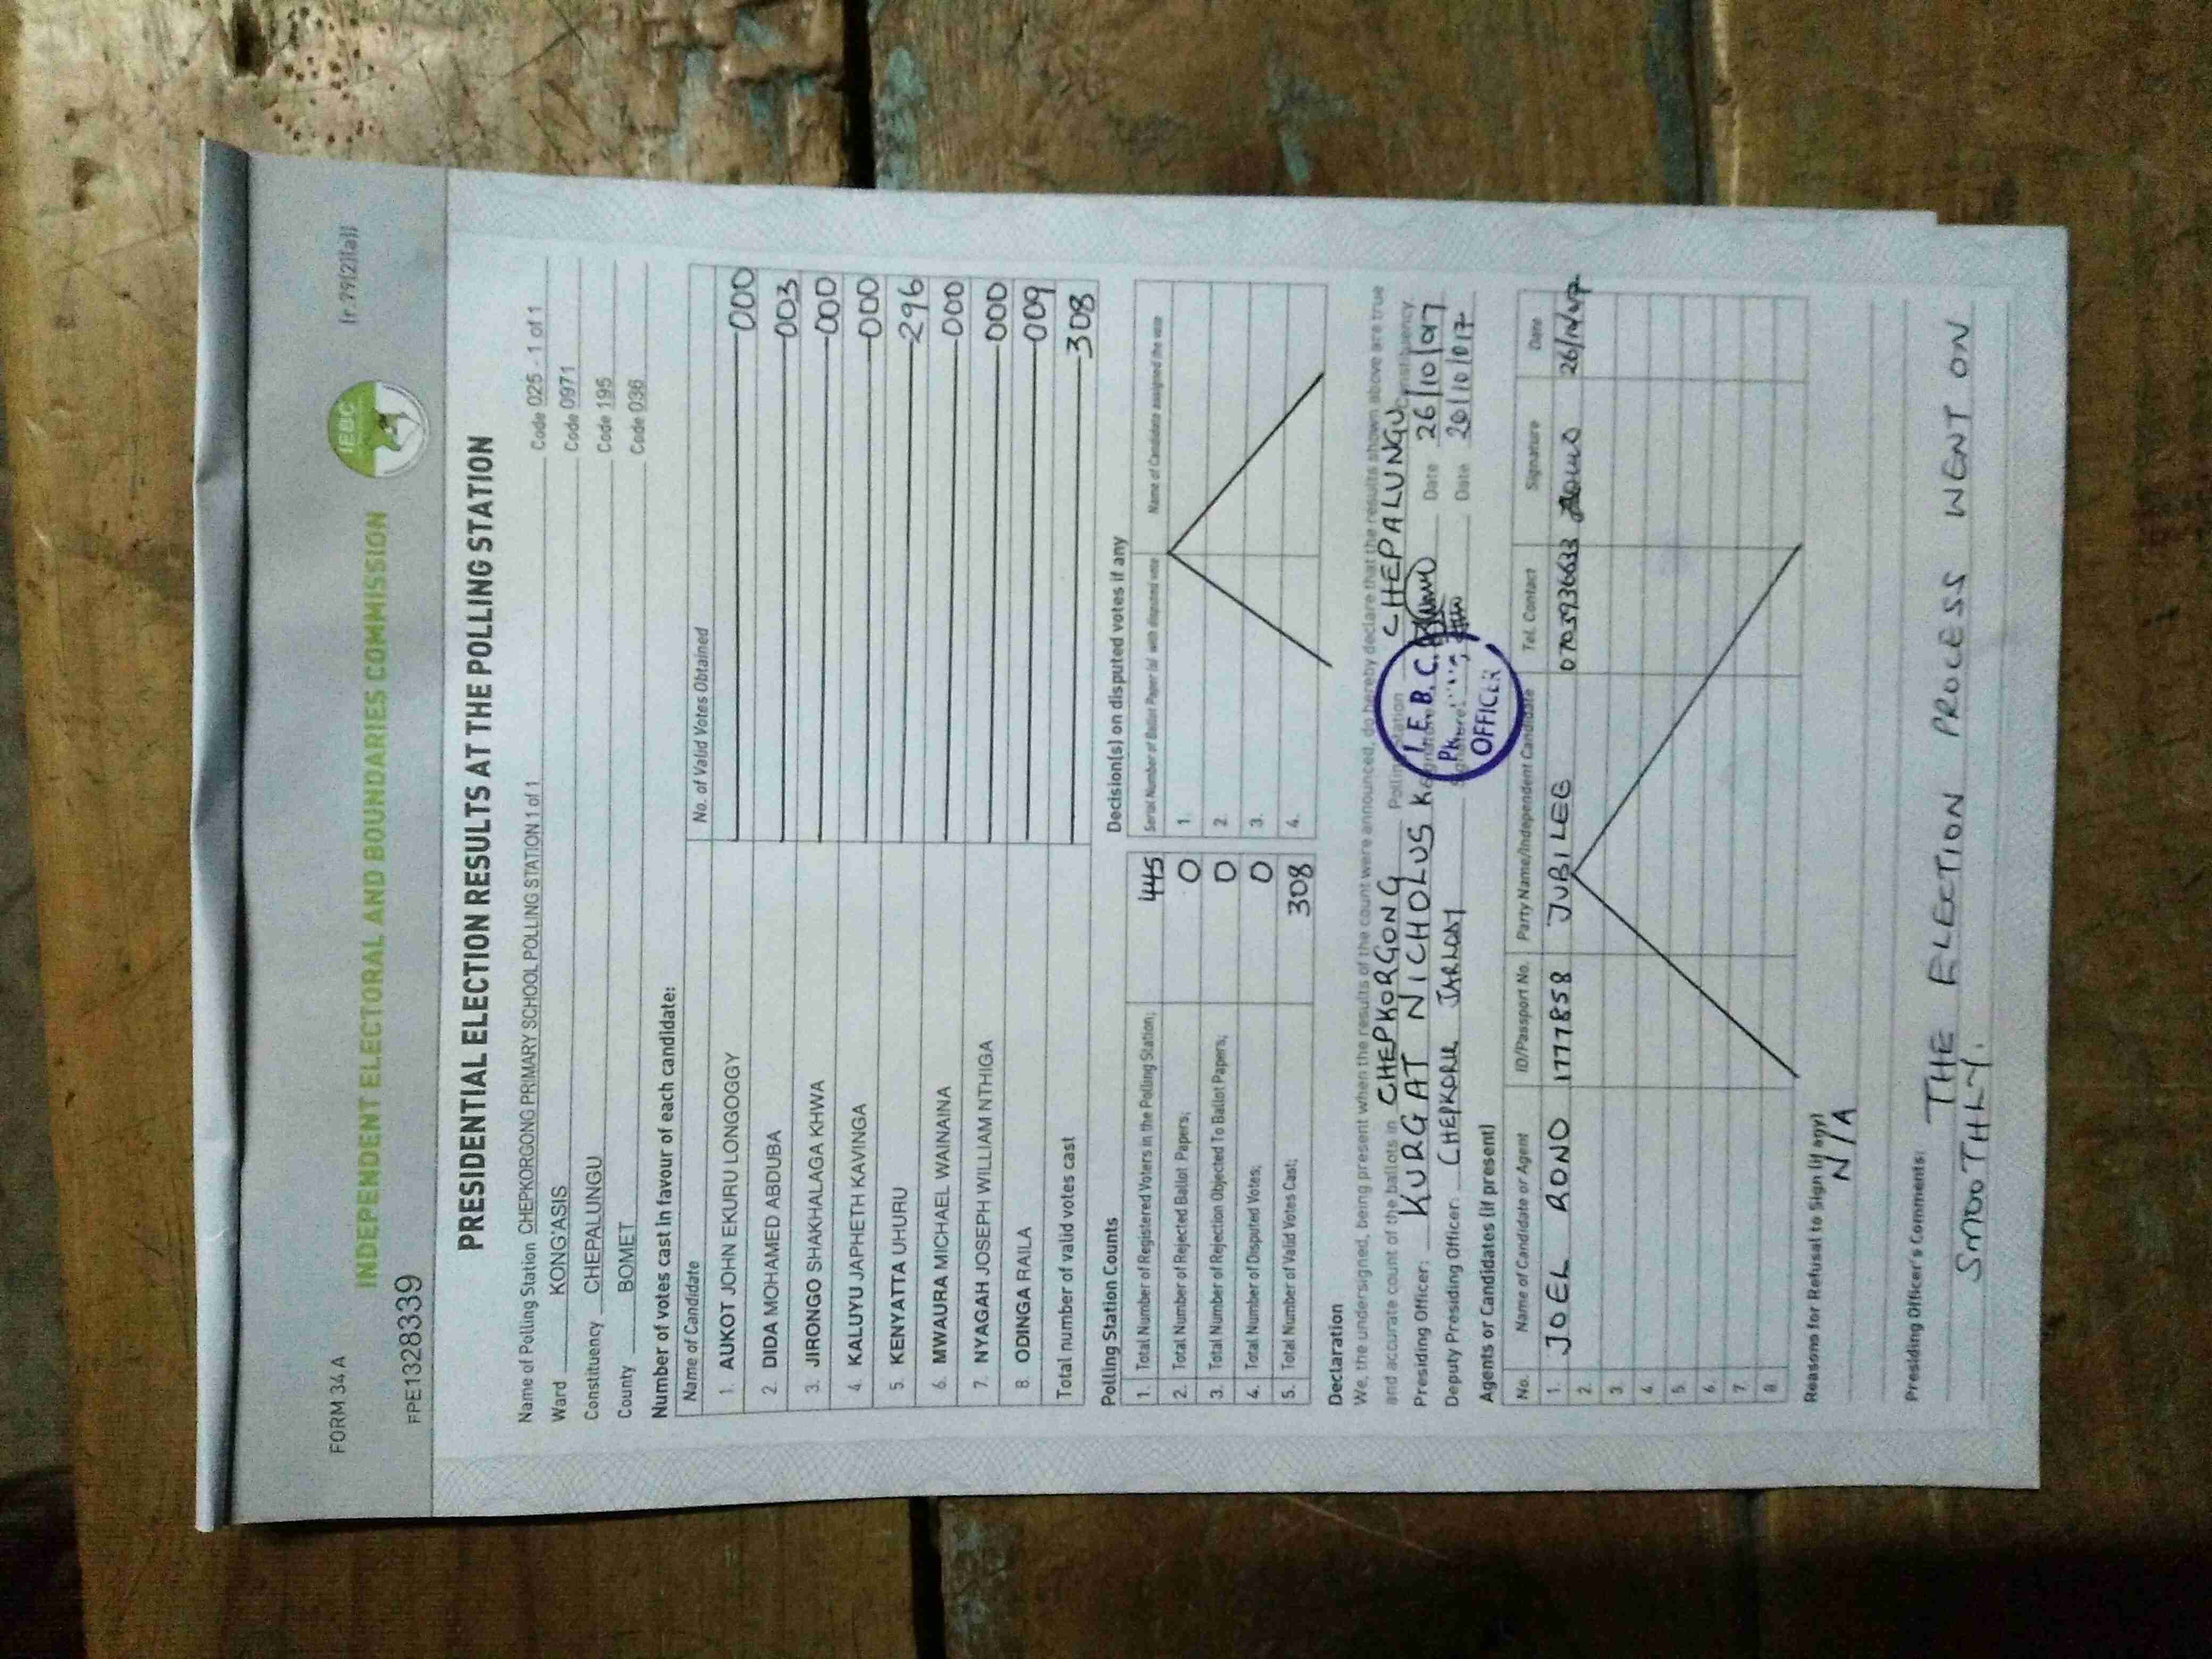 FORM 34 A
(r.79(2)(a))
INDEPENDENT ELECTORAL AND BOUNDARIES COMMISSION
IEBC
FPE1328339
PRESIDENTIAL ELECTION RESULTS AT THE POLLING STATION
Name of Polling Station CHEPKORGONG PRIMARY SCHOOL POLLING STATION 1 of 1 Code 025 - 1 of 1
Ward KONG'ASIS Code 0971
Constituency CHEPALUNGU Code 195
County BOMET Code 036
Number of votes cast in favour of each candidate:
Name of Candidate No. of Valid Votes Obtained
1. AUKOT JOHN EKURU LONGOGGY 000
2. DIDA MOHAMED ABDUBA 003
3. JIRONGO SHAKHALAGA KHWA 000
4. KALUYU JAPHETH KAVINGA 000
5. KENYATTA UHURU 296
6. MWAURA MICHAEL WAINAINA 000
7. NYAGAH JOSEPH WILLIAM NTHIGA 000
8. ODINGA RAILA 009
Total number of valid votes cast 308
Polling Station Counts
1. Total Number of Registered Voters in the Polling Station; 445
2. Total Number of Rejected Ballot Papers; 0
3. Total Number of Rejection Objected To Ballot Papers; 0
4. Total Number of Disputed Votes; 0
5. Total Number of Valid Votes Cast; 308
Decision(s) on disputed votes if any
Serial Number of Ballot Paper (s) with disputed vote Name of Candidate assigned the vote
1.
2.
3.
4.
Declaration
We, the undersigned, being present when the results of the count were announced, do hereby declare that the results shown above are true
and accurate count of the ballots in CHEPKORGONG Polling Station CHEPALUNGU Constituency.
Presiding Officer: KURGAT NICHOLUS K Date 26/10/017
Deputy Presiding Officer: CHEPKORIR Date 26/10/017
I.E.B.C.
OFFICER
Agents or Candidates (if present)
No. Name of Candidate or Agent ID/Passport No. Party Name/Independent Candidate Tel. Contact Signature Date
1. JOEL RONO 1777858 JUBILEE 0705936633
2.
3.
4.
5.
6.
7.
8.
Reasons for Refusal to Sign (if any)
N/A
Presiding Officer's Comments:
THE ELECTION PROCESS WENT ON
SMOOTHLY.